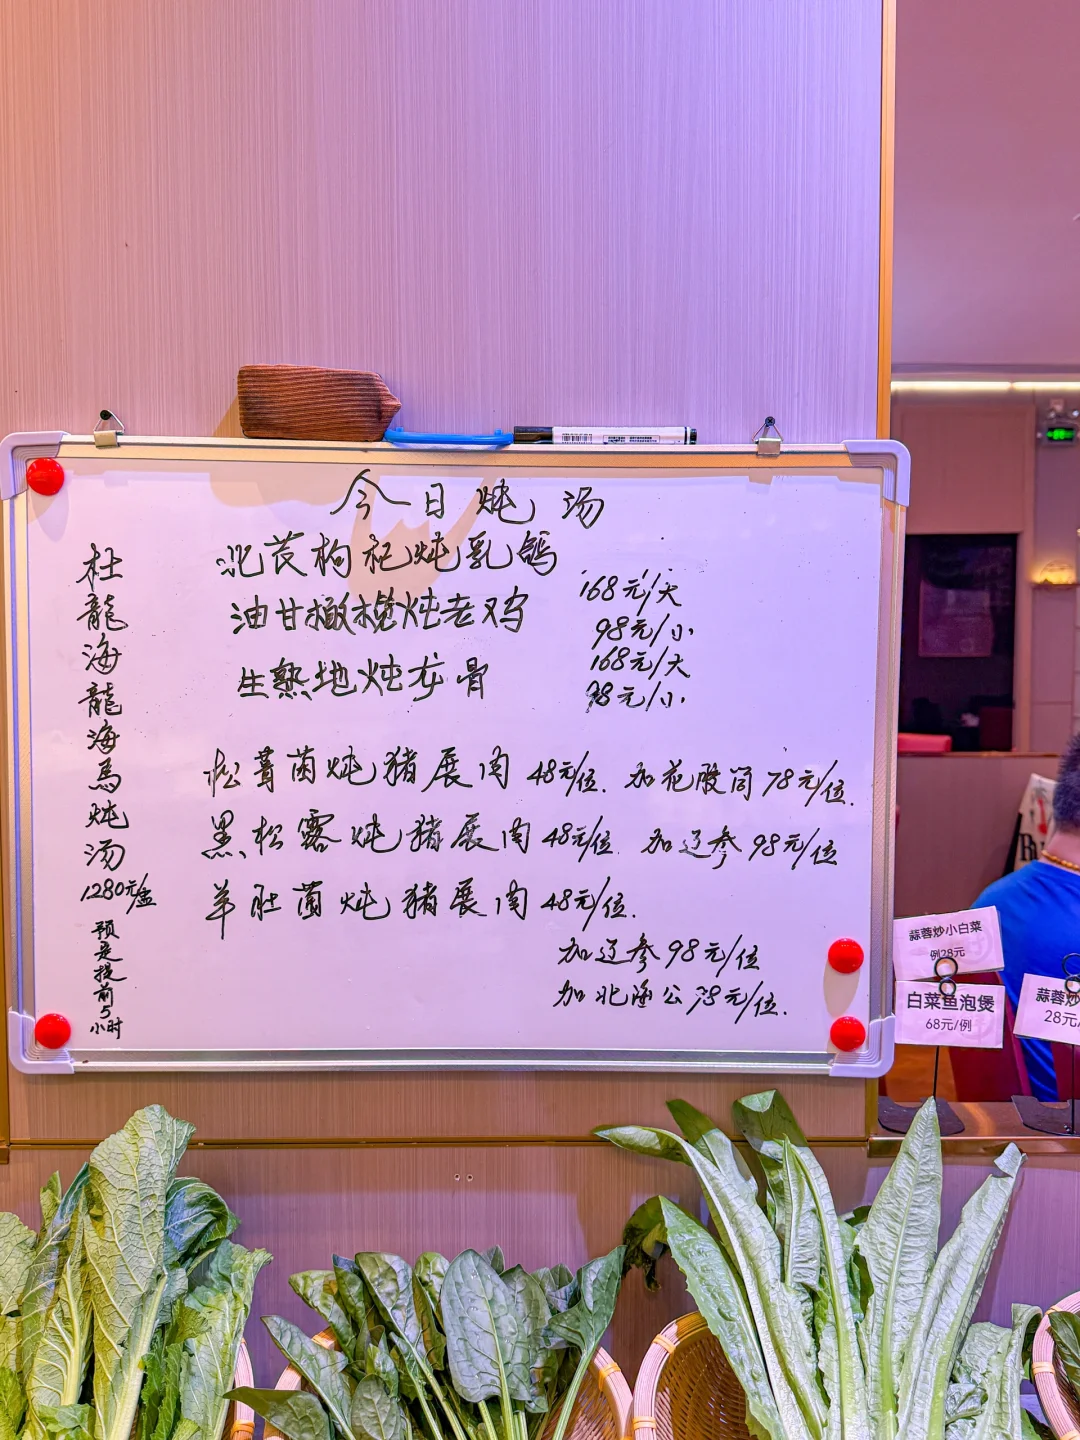 今日炖汤
北芪枸杞炖乳鸽
油甘橄榄炖老鸡
生熟地炖龙骨
168元/大
98元/小
168元/大
98元/小
松茸菌炖猪展肉 48元/位. 加花胶筒 78元/位.
黑松露炖猪展肉 48元/位. 加辽参 98元/位
羊肚菌炖猪展肉 48元/位.
加辽参 98元/位
加北海公 78元/位.
杜龍海龍海馬炖汤
1280元/盅
预是提前5小时
蒜蓉炒小白菜
例28元
白菜鱼泡煲
68元/例
蒜蓉炒
28元/